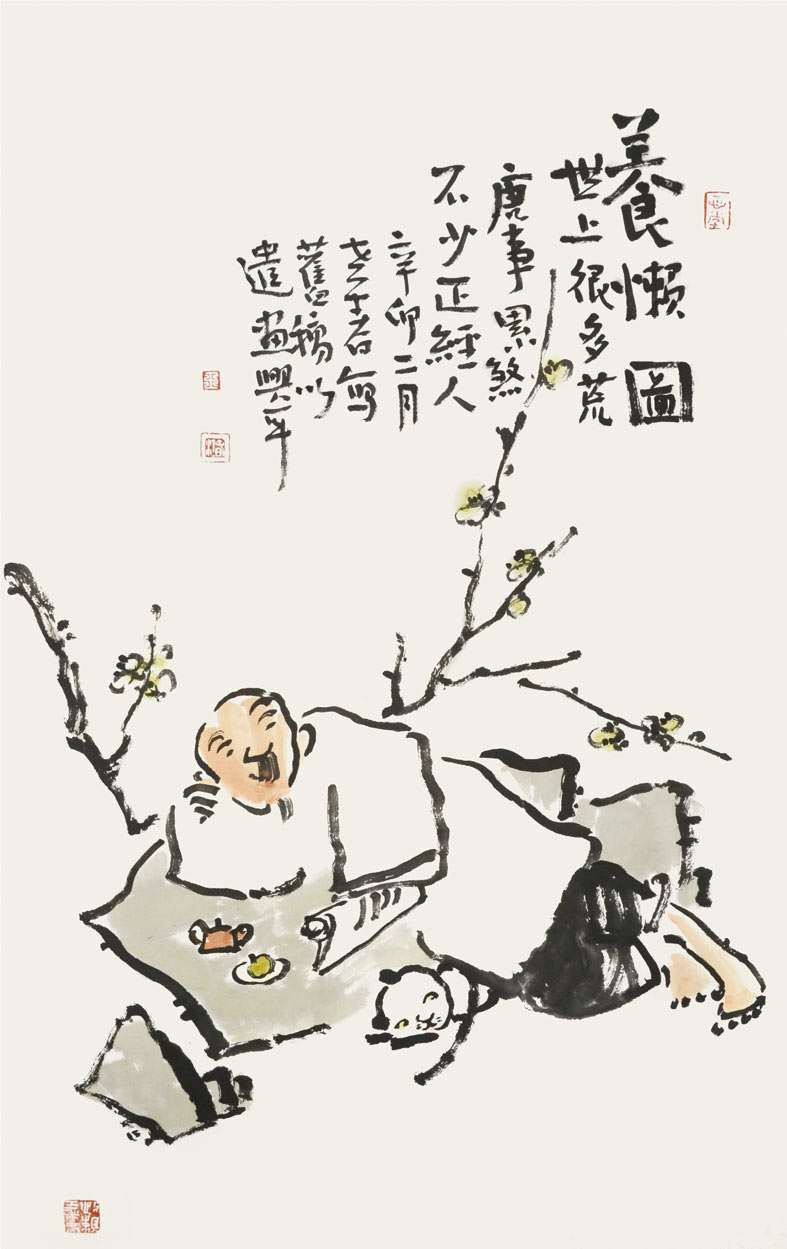 養懶圖
世上很多荒
唐事累煞
不少正經人
辛卯二月
寫
舊稿以
遣畫興耳